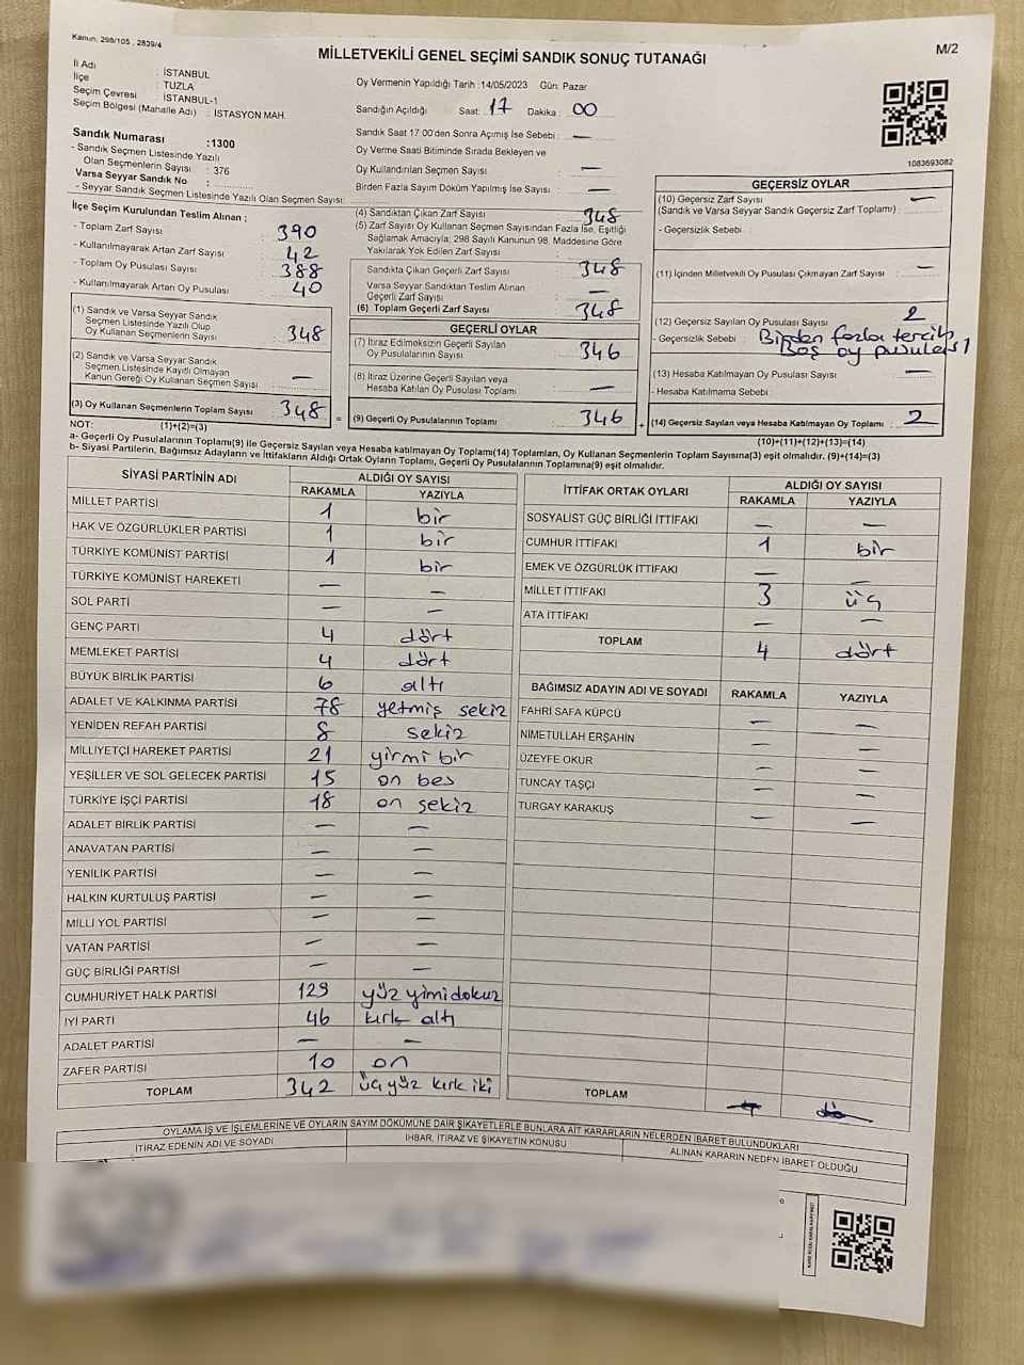 Kanun: 298/105 , 2839/4
M/2
MİLLETVEKİLİ GENEL SEÇİMİ SANDIK SONUÇ TUTANAĞI
İl Adı : İSTANBUL
İlçe : TUZLA
Seçim Çevresi : İSTANBUL-1
Seçim Bölgesi (Mahalle Adı) : İSTASYON MAH.
Sandık Numarası :1300
- Sandık Seçmen Listesinde Yazılı
Olan Seçmenlerin Sayısı : 376
Varsa Seyyar Sandık No :
- Seyyar Sandık Seçmen Listesinde Yazılı Olan Seçmen Sayısı:
Oy Vermenin Yapıldığı Tarih :14/05/2023 Gün: Pazar
Sandığın Açıldığı Saat: 17 Dakika : 00
Sandık Saat 17 00'den Sonra Açımış İse Sebebi : —
Oy Verme Saati Bitiminde Sırada Bekleyen ve
Oy Kullandırılan Seçmen Sayısı : —
Birden Fazla Sayım Döküm Yapılmış İse Sayısı : —
1083693082
İlçe Seçim Kurulundan Teslim Alınan ;
- Toplam Zarf Sayısı : 390
- Kullanılmayarak Artan Zarf Sayısı : 42
- Toplam Oy Pusulası Sayısı : 388
- Kullanılmayarak Artan Oy Pusulası : 40
(1) Sandık ve Varsa Seyyar Sandık
Seçmen Listesinde Yazılı Olup
Oy Kullanan Seçmenlerin Sayısı : 348
(2) Sandık ve Varsa Seyyar Sandık
Seçmen Listesinde Kayıtlı Olmayan
Kanun Gereği Oy Kullanan Seçmen Sayısı : —
(3) Oy Kullanan Seçmenlerin Toplam Sayısı : 348 =
(4) Sandıktan Çıkan Zarf Sayısı : 348
(5) Zarf Sayısı Oy Kullanan Seçmen Sayısından Fazla İse, Eşitliği
Sağlamak Amacıyla; 298 Sayılı Kanunun 98. Maddesine Göre
Yakılarak Yok Edilen Zarf Sayısı :
Sandıkta Çıkan Geçerli Zarf Sayısı : 348
Varsa Seyyar Sandıktan Teslim Alınan
Geçerli Zarf Sayısı : —
(6) Toplam Geçerli Zarf Sayısı : 348
GEÇERLİ OYLAR
(7) İtiraz Edilmeksizin Geçerli Sayılan
Oy Pusulalarının Sayısı : 346
(8) İtiraz Üzerine Geçerli Sayılan veya
Hesaba Katılan Oy Pusulası Toplamı : —
(9) Geçerli Oy Pusulalarının Toplamı : 346 +
GEÇERSİZ OYLAR
(10) Geçersiz Zarf Sayısı : —
(Sandık ve Varsa Seyyar Sandık Geçersiz Zarf Toplamı)
- Geçersizlik Sebebi :
(11) İçinden Milletvekili Oy Pusulası Çıkmayan Zarf Sayısı : —
(12) Geçersiz Sayılan Oy Pusulası Sayısı : 2
- Geçersizlik Sebebi : Birden fazla tercih
Boş oy pusulası 1
(13) Hesaba Katılmayan Oy Pusulası Sayısı : —
- Hesaba Katılmama Sebebi :
(14) Geçersiz Sayılan veya Hesaba Katılmayan Oy Toplamı : 2
NOT: (1)+(2)=(3)
(10)+(11)+(12)+(13)=(14)
a- Geçerli Oy Pusulalarının Toplamı(9) ile Geçersiz Sayılan veya Hesaba katılmayan Oy Toplamı(14) Toplamları, Oy Kullanan Seçmenlerin Toplam Sayısına(3) eşit olmalıdır. (9)+(14)=(3)
b- Siyasi Partilerin, Bağımsız Adayların ve İttifakların Aldığı Ortak Oyların Toplamı, Geçerli Oy Pusulalarının Toplamına(9) eşit olmalıdır.
SİYASİ PARTİNİN ADI ALDIĞI OY SAYISI
RAKAMLA YAZIYLA
MİLLET PARTİSİ 1 bir
HAK VE ÖZGÜRLÜKLER PARTİSİ 1 bir
TÜRKİYE KOMÜNİST PARTİSİ 1 bir
TÜRKİYE KOMÜNİST HAREKETİ — —
SOL PARTİ — —
GENÇ PARTİ 4 dört
MEMLEKET PARTİSİ 4 dört
BÜYÜK BİRLİK PARTİSİ 6 altı
ADALET VE KALKINMA PARTİSİ 78 yetmiş sekiz
YENİDEN REFAH PARTİSİ 8 sekiz
MİLLİYETÇİ HAREKET PARTİSİ 21 yirmi bir
YEŞİLLER VE SOL GELECEK PARTİSİ 15 on bes
TÜRKİYE İŞÇİ PARTİSİ 18 on sekiz
ADALET BİRLİK PARTİSİ — —
ANAVATAN PARTİSİ — —
YENİLİK PARTİSİ — —
HALKIN KURTULUŞ PARTİSİ — —
MİLLİ YOL PARTİSİ — —
VATAN PARTİSİ — —
GÜÇ BİRLİĞİ PARTİSİ — —
CUMHURİYET HALK PARTİSİ 129 yüz yimi dokuz
İYİ PARTİ 46 kırk altı
ADALET PARTİSİ — —
ZAFER PARTİSİ 10 on
TOPLAM 342 üç yüz kırk iki
İTTİFAK ORTAK OYLARI ALDIĞI OY SAYISI
RAKAMLA YAZIYLA
SOSYALİST GÜÇ BİRLİĞİ İTTİFAKI — —
CUMHUR İTTİFAKI 1 bir
EMEK VE ÖZGÜRLÜK İTTİFAKI — —
MİLLET İTTİFAKI 3 üç
ATA İTTİFAKI — —
TOPLAM 4 dört
BAĞIMSIZ ADAYIN ADI VE SOYADI RAKAMLA YAZIYLA
FAHRİ SAFA KÜPCÜ — —
NİMETULLAH ERŞAHİN — —
ÜZEYFE OKUR — —
TUNCAY TAŞÇI — —
TURGAY KARAKUŞ — —
TOPLAM
OYLAMA İŞ VE İŞLEMLERİNE VE OYLARIN SAYIM DÖKÜMÜNE DAİR ŞİKAYETLERLE BUNLARA AİT KARARLARIN NELERDEN İBARET BULUNDUKLARI
İTİRAZ EDENİN ADI VE SOYADI İHBAR, İTİRAZ VE ŞİKAYETİN KONUSU ALINAN KARARIN NEDEN İBARET OLDUĞU